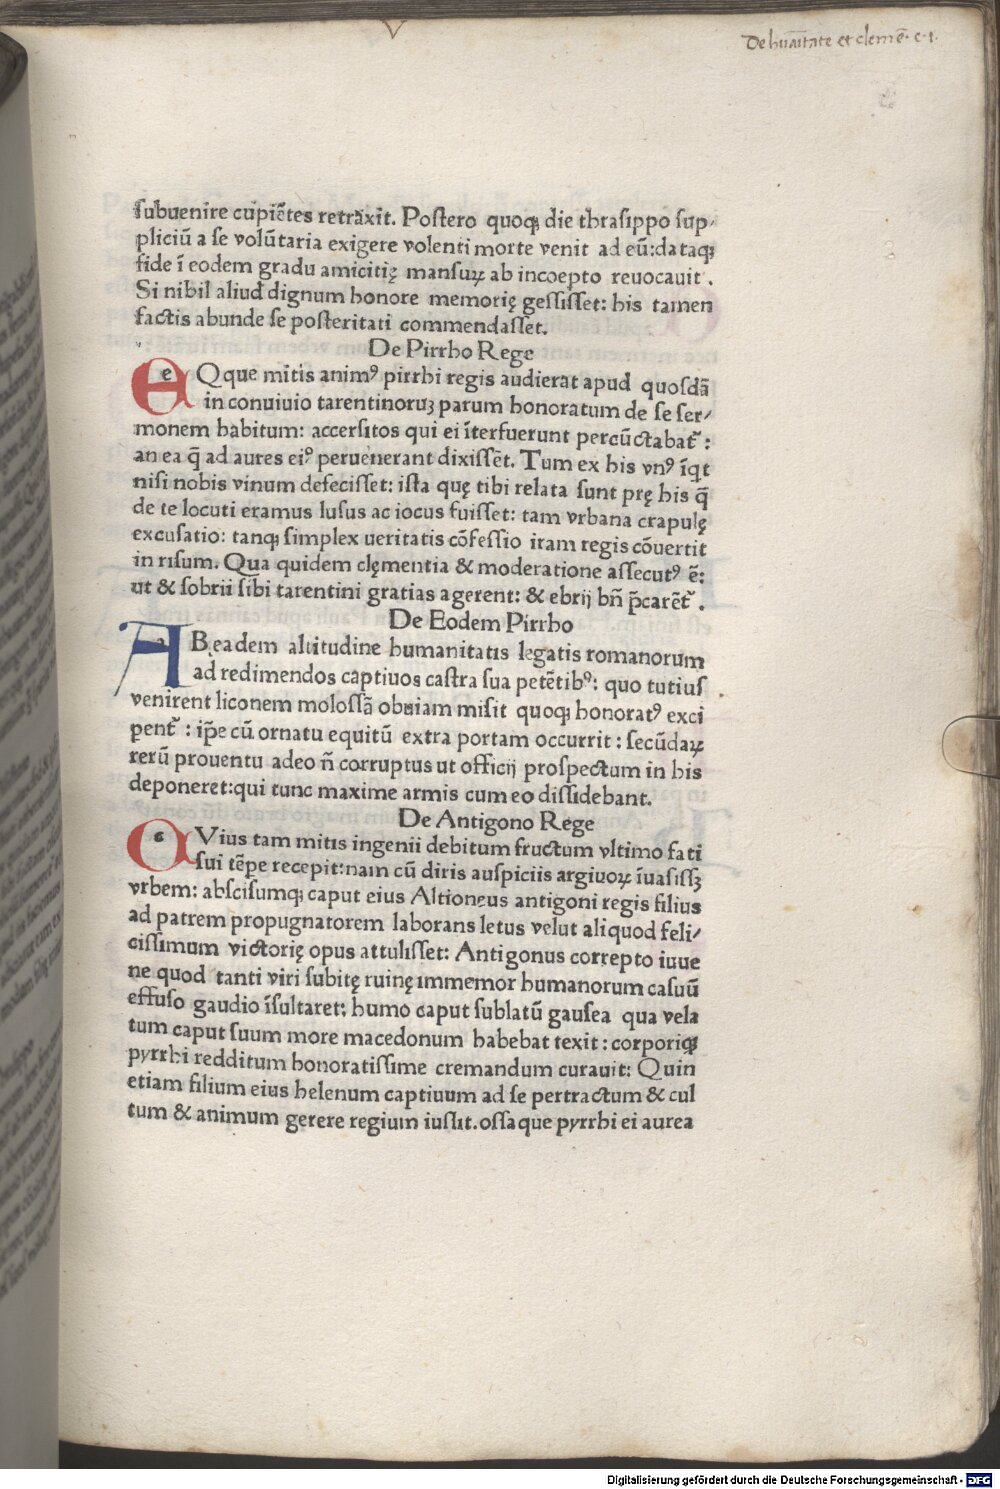 De hūaītate et clemē. c. 1.
subuenire cupiētes retraxit. Postero quoqꝫ die thrasippo sup-
pliciū a se volūtaria exigere volenti morte venit ad eū: dataqꝫ
fide ī eodem gradu amicitię mansuꝝ ab incoepto reuocauit.
Si nihil aliud dignum honore memorię gessisset: his tamen
factis abunde se posteritati commendasset.
De Pirrho Rege
e Qque mitis animꝰ pirrhi regis audierat apud quosdā
in conuiuio tarentinoruꝫ parum honoratum de se ser/
monem habitum: accersitos qui ei īterfuerunt percūctabat᷑:
an ea q̄ ad aures eiꝰ peruenerant dixissēt. Tum ex his vnꝰ īqt
nisi nobis vinum defecisset: ista quę tibi relata sunt prę his q̄
de te locuti eramus lusus ac iocus fuisset: tam vrbana crapulę
excusatio: tanqꝫ simplex ueritatis cōfessio iram regis cōuertit
in risum. Qua quidem clęmentia & moderatione assecutꝰ ē:
ut & sobrii sibi tarentini gratias agerent: & ebrij bn̄ p̄carēt᷑.
De Eodem Pirrho
A B eadem altitudine humanitatis legatis romanorum
ad redimendos captiuos castra sua petētibꝰ: quo tutius
venirent liconem molossā obuiam misit quoqꝫ honoratꝰ exci
pent᷑: ip̄e cū ornatu equitū extra portam occurrit: secūdaꝝ
rerū prouentu adeo n̄ corruptus ut officij prospectum in his
deponeret: qui tunc maxime armis cum eo dissidebant.
De Antigono Rege
c Vius tam mitis ingenii debitum fructum vltimo fati
sui tēpe recepit: nam cū diris auspiciis argiuoꝝ īuasissꝫ
vrbem: abscisumqꝫ caput eius Altioneus antigoni regis filius
ad patrem propugnatorem laborans letus velut aliquod feli/
cissimum victorię opus attulisset: Antigonus correpto iuue
ne quod tanti viri subitę ruinę immemor humanorum casuū
effuso gaudio īsultaret: humo caput sublatū gausea qua vela
tum caput suum more macedonum habebat texit: corporiqꝫ
pyrrhi redditum honoratissime cremandum curauit: Quin
etiam filium eius helenum captiuum ad se pertractum & cul
tum & animum gerere regium iussit. ossaque pyrrhi ei aurea
Digitalisierung gefördert durch die Deutsche Forschungsgemeinschaft - DFG